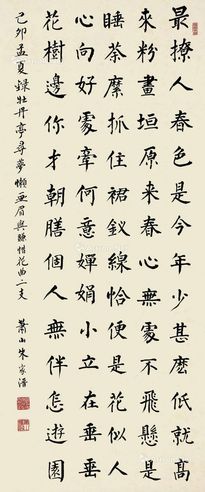 最撩人春色是今年少甚麽低就高
來粉畫垣原來春心無處不飛懸是
睡荼糜抓住裙釵線恰便是花似人
心向好處牽何意嬋娟小立在垂垂
花樹邊你才朝膳個人無伴怎遊園
己卯孟夏錄牡丹亭尋夢懶画眉與賺惜花曲二支
蕭山朱家溍